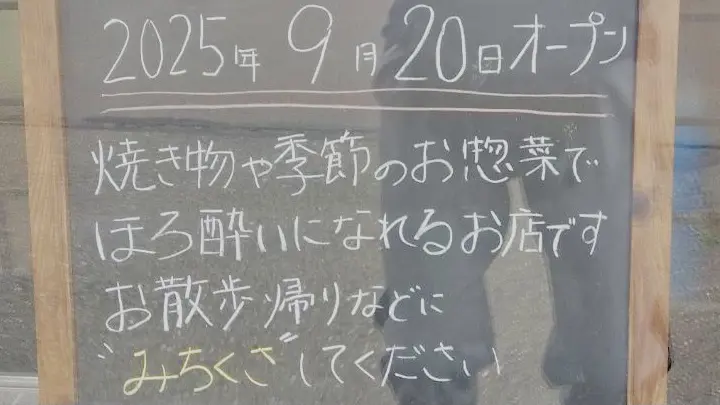 2025年 9月20日オープン
焼き物や季節のお惣菜で
ほろ酔いになれるお店です
お散歩・帰りなどに
"みちくさ"してください